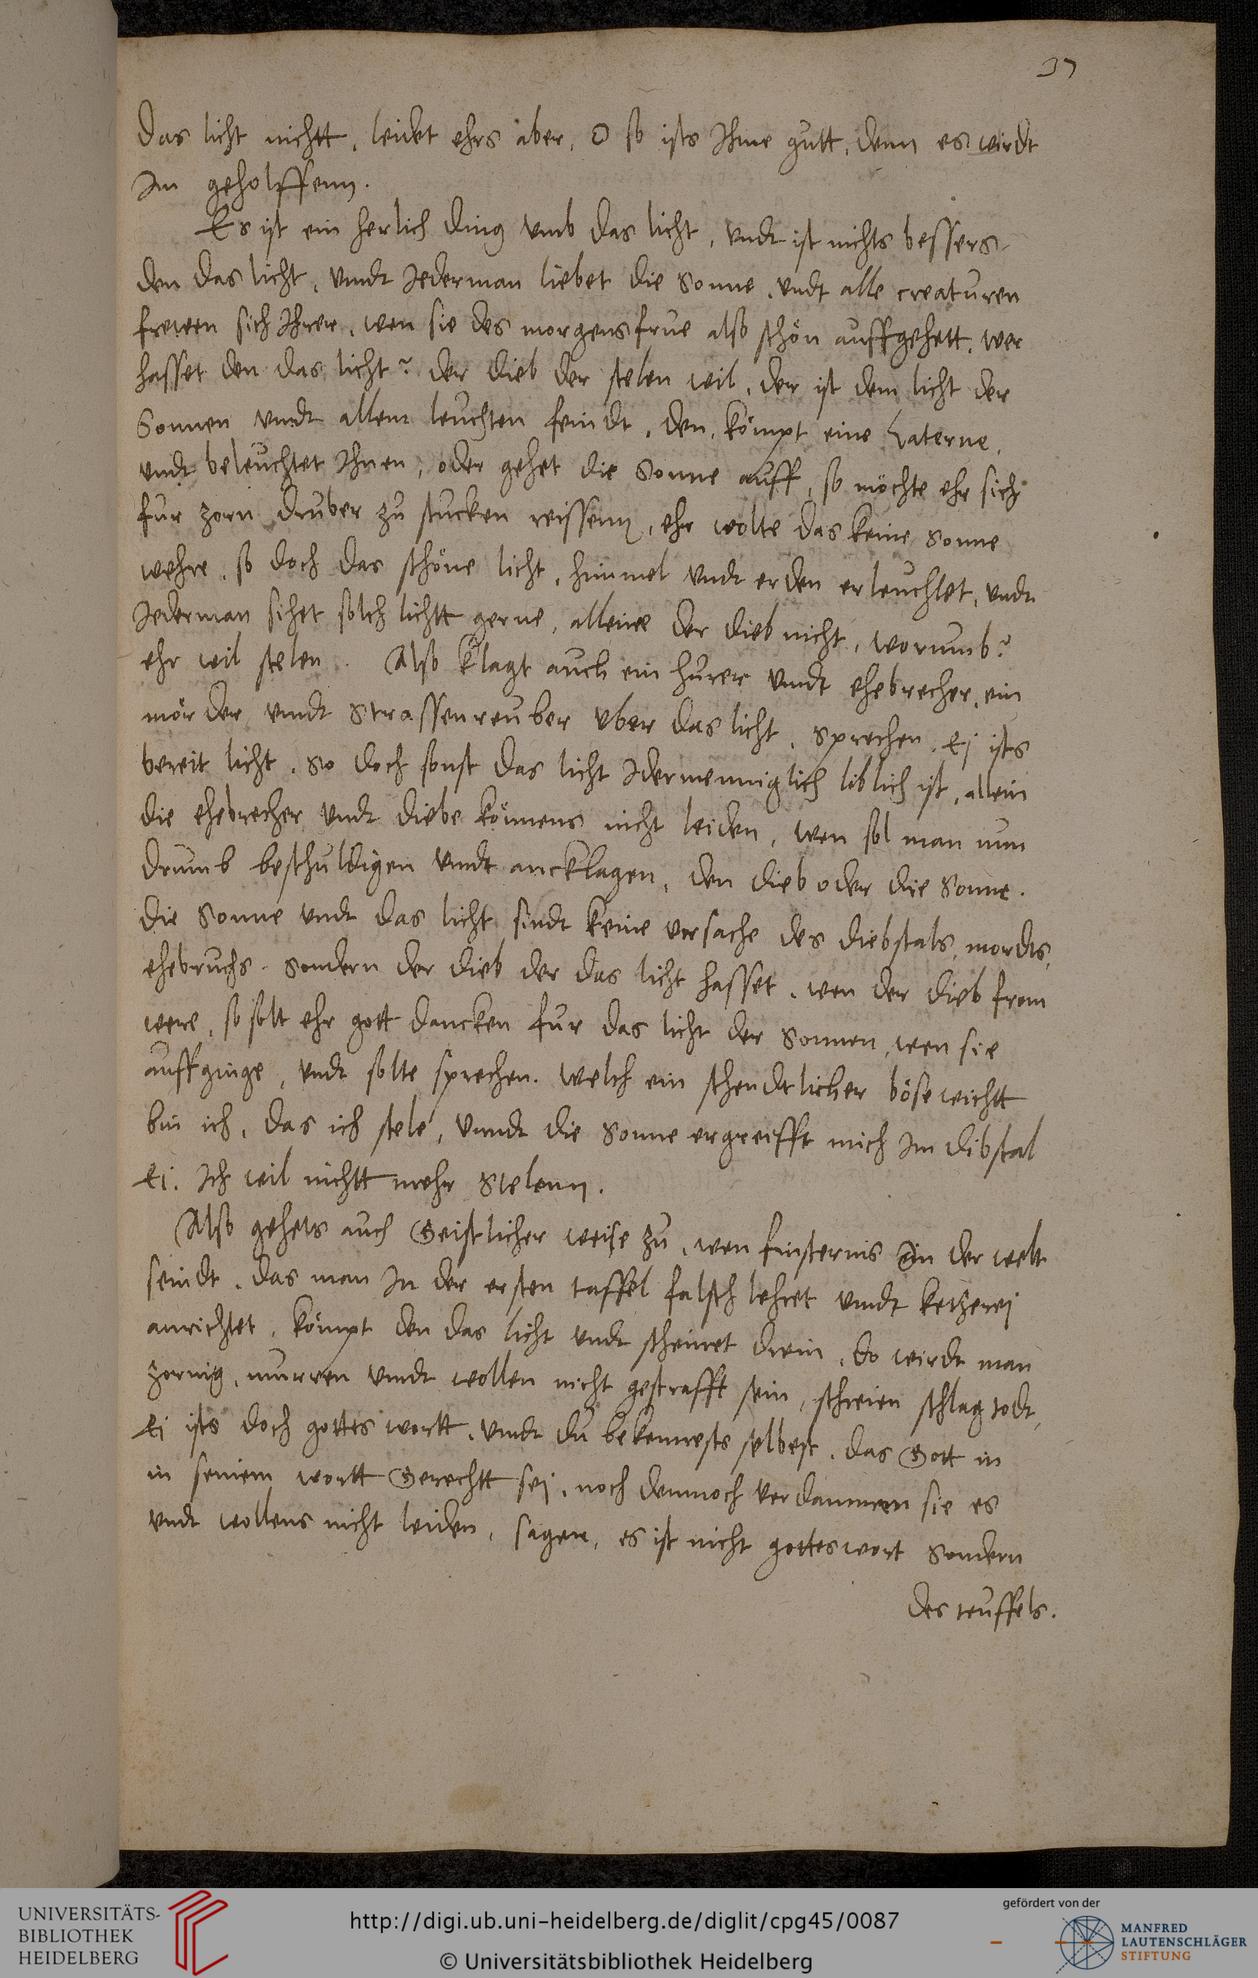 37
das licht nichtt, leidet ehrs aber, O so ists Ihme gutt, denn es wirdt
Im geholffenn.
Es ist ein herlich ding vmb das licht, vndt ist nichts bessers
den das licht, vnndt Jederman liebet die Sonne, vndt alle creaturen
frewen sich Ihrer, wen sie des morgens frue also schön auffgehett, wer
hasset den das licht? der dieb der stelen wil, der ist dem licht der
Sonnen vndt allem leuchten feindt, den kömpt eine Laterne,
vndt beleuchtet Ihnen, oder gehet die Sonne auff, so möchte ehr sich
fur zorn druber zu stucken reissenn, ehr wolte das keine Sonne
wehre, so doch das schöne licht, himmel vndt erden erleuchtet, vndt
Jederman sihet solch lichtt gerne, alleine der dieb nicht, worumb?
ehr wil stelen. Also klagt auch ein hurer vnndt ehebrecher, ein
mörder vnndt Strassenreuber vber das licht, sprechen, Ej ists
bereit licht, So doch sonst das licht Idermenniglich liblich ist, allein
die ehebrecher vndt diebe könnens nicht leiden, wen sol man nun
drumb beschuldigen vnndt ancklagen, den dieb oder die Sonne.
die Sonne vndt das licht sindt keine vrsache des diebstals, mordts,
ehebruchs. Sondern der dieb der das licht hasset, wen der dieb from
were, so solt ehr gott dancken fur das licht der Sonnen, wen sie
auffginge, vndt solte sprechen. Welch ein schendtlicher bösewichtt
bin ich, das ich stele, vnndt die Sonne ergreifft mich Im dibstal
Ei. Ich wil nichtt mehr Stelenn.
Also gehets auch Geistlicher weise zu, wen finsternis in der welt
seindt, das man In der ersten taffel falsch lehret vnndt ketzerej
anrichtet, kömpt den das licht vndt scheinet drein, do wirdt man
zornig, murren vnndt wollen nicht gestrafft sein, schreien schlag todt,
Ei ists doch gottes wortt, vnndt du bekennests selbest, das Gott in
in seinem wortt Gerechtt sej, noch dennoch verdammen sie es
vndt wollens nicht leiden, sagen, es ist nicht gottes wort Sondern
des teuffels.
UNIVERSITÄTS-
BIBLIOTHEK
HEIDELBERG
http://digi.ub.uni-heidelberg.de/diglit/cpg45/0087
© Universitätsbibliothek Heidelberg
gefördert von der
MANFRED
LAUTENSCHLÄGER
STIFTUNG